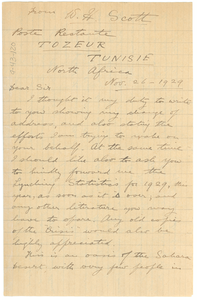 From W. S. Scott
Poste Restante
TOZEUR
TUNISIE
North Africa
Nov. 26 - 1929
Dear Sir
I thought it my duty to write
to you showing my change of
address, and also stating the
efforts I am trying to make on
your behalf. At the same time
I should like also to ask you
to kindly forward me the
Lynching Statistics for 1929, the
year, as soon as it is over, and
any other literature you may
have to spare. Any old copies
of the Crisis would also be
highly appreciated.
This is an oasis of the Sahara
desert with very few people in